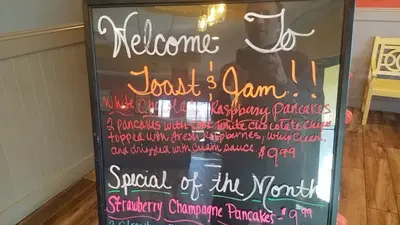 Welcome To
Toast & Jam!!
White Chocolate Raspberry Pancakes
2 pancakes with white chocolate chips
topped with fresh Raspberries, whip cream
and drizzled with cream sauce $9.99
Special of the Month
Strawberry Champagne Pancakes - $9.99